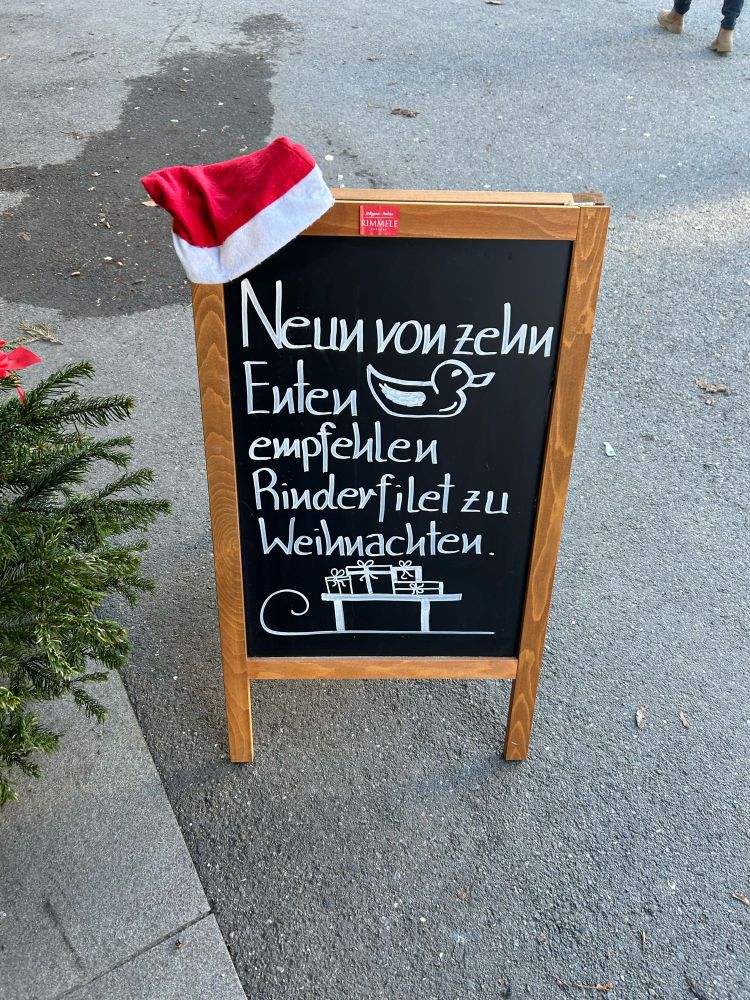 RIMMELE
Neun von zehn
Enten
empfehlen
Rinderfilet zu
Weihnachten.